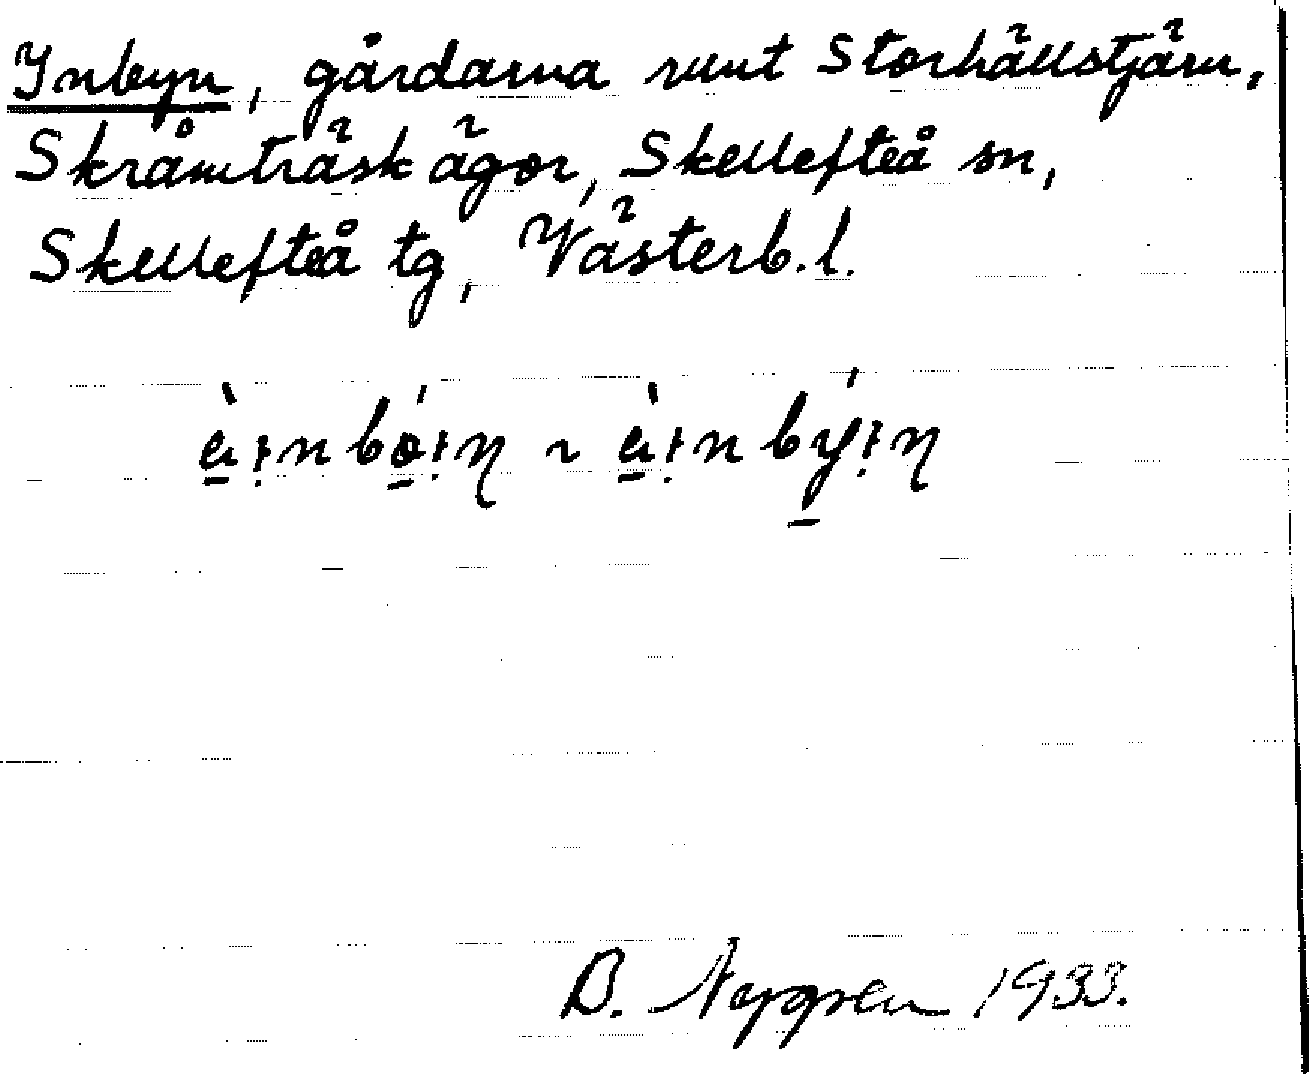 Inbyn, gårdarna runt Storhällstjärn,
Skråmträsk ägor, Skellefteå sn,
Skellefteå tg, Västerb. l.
B. 1933.